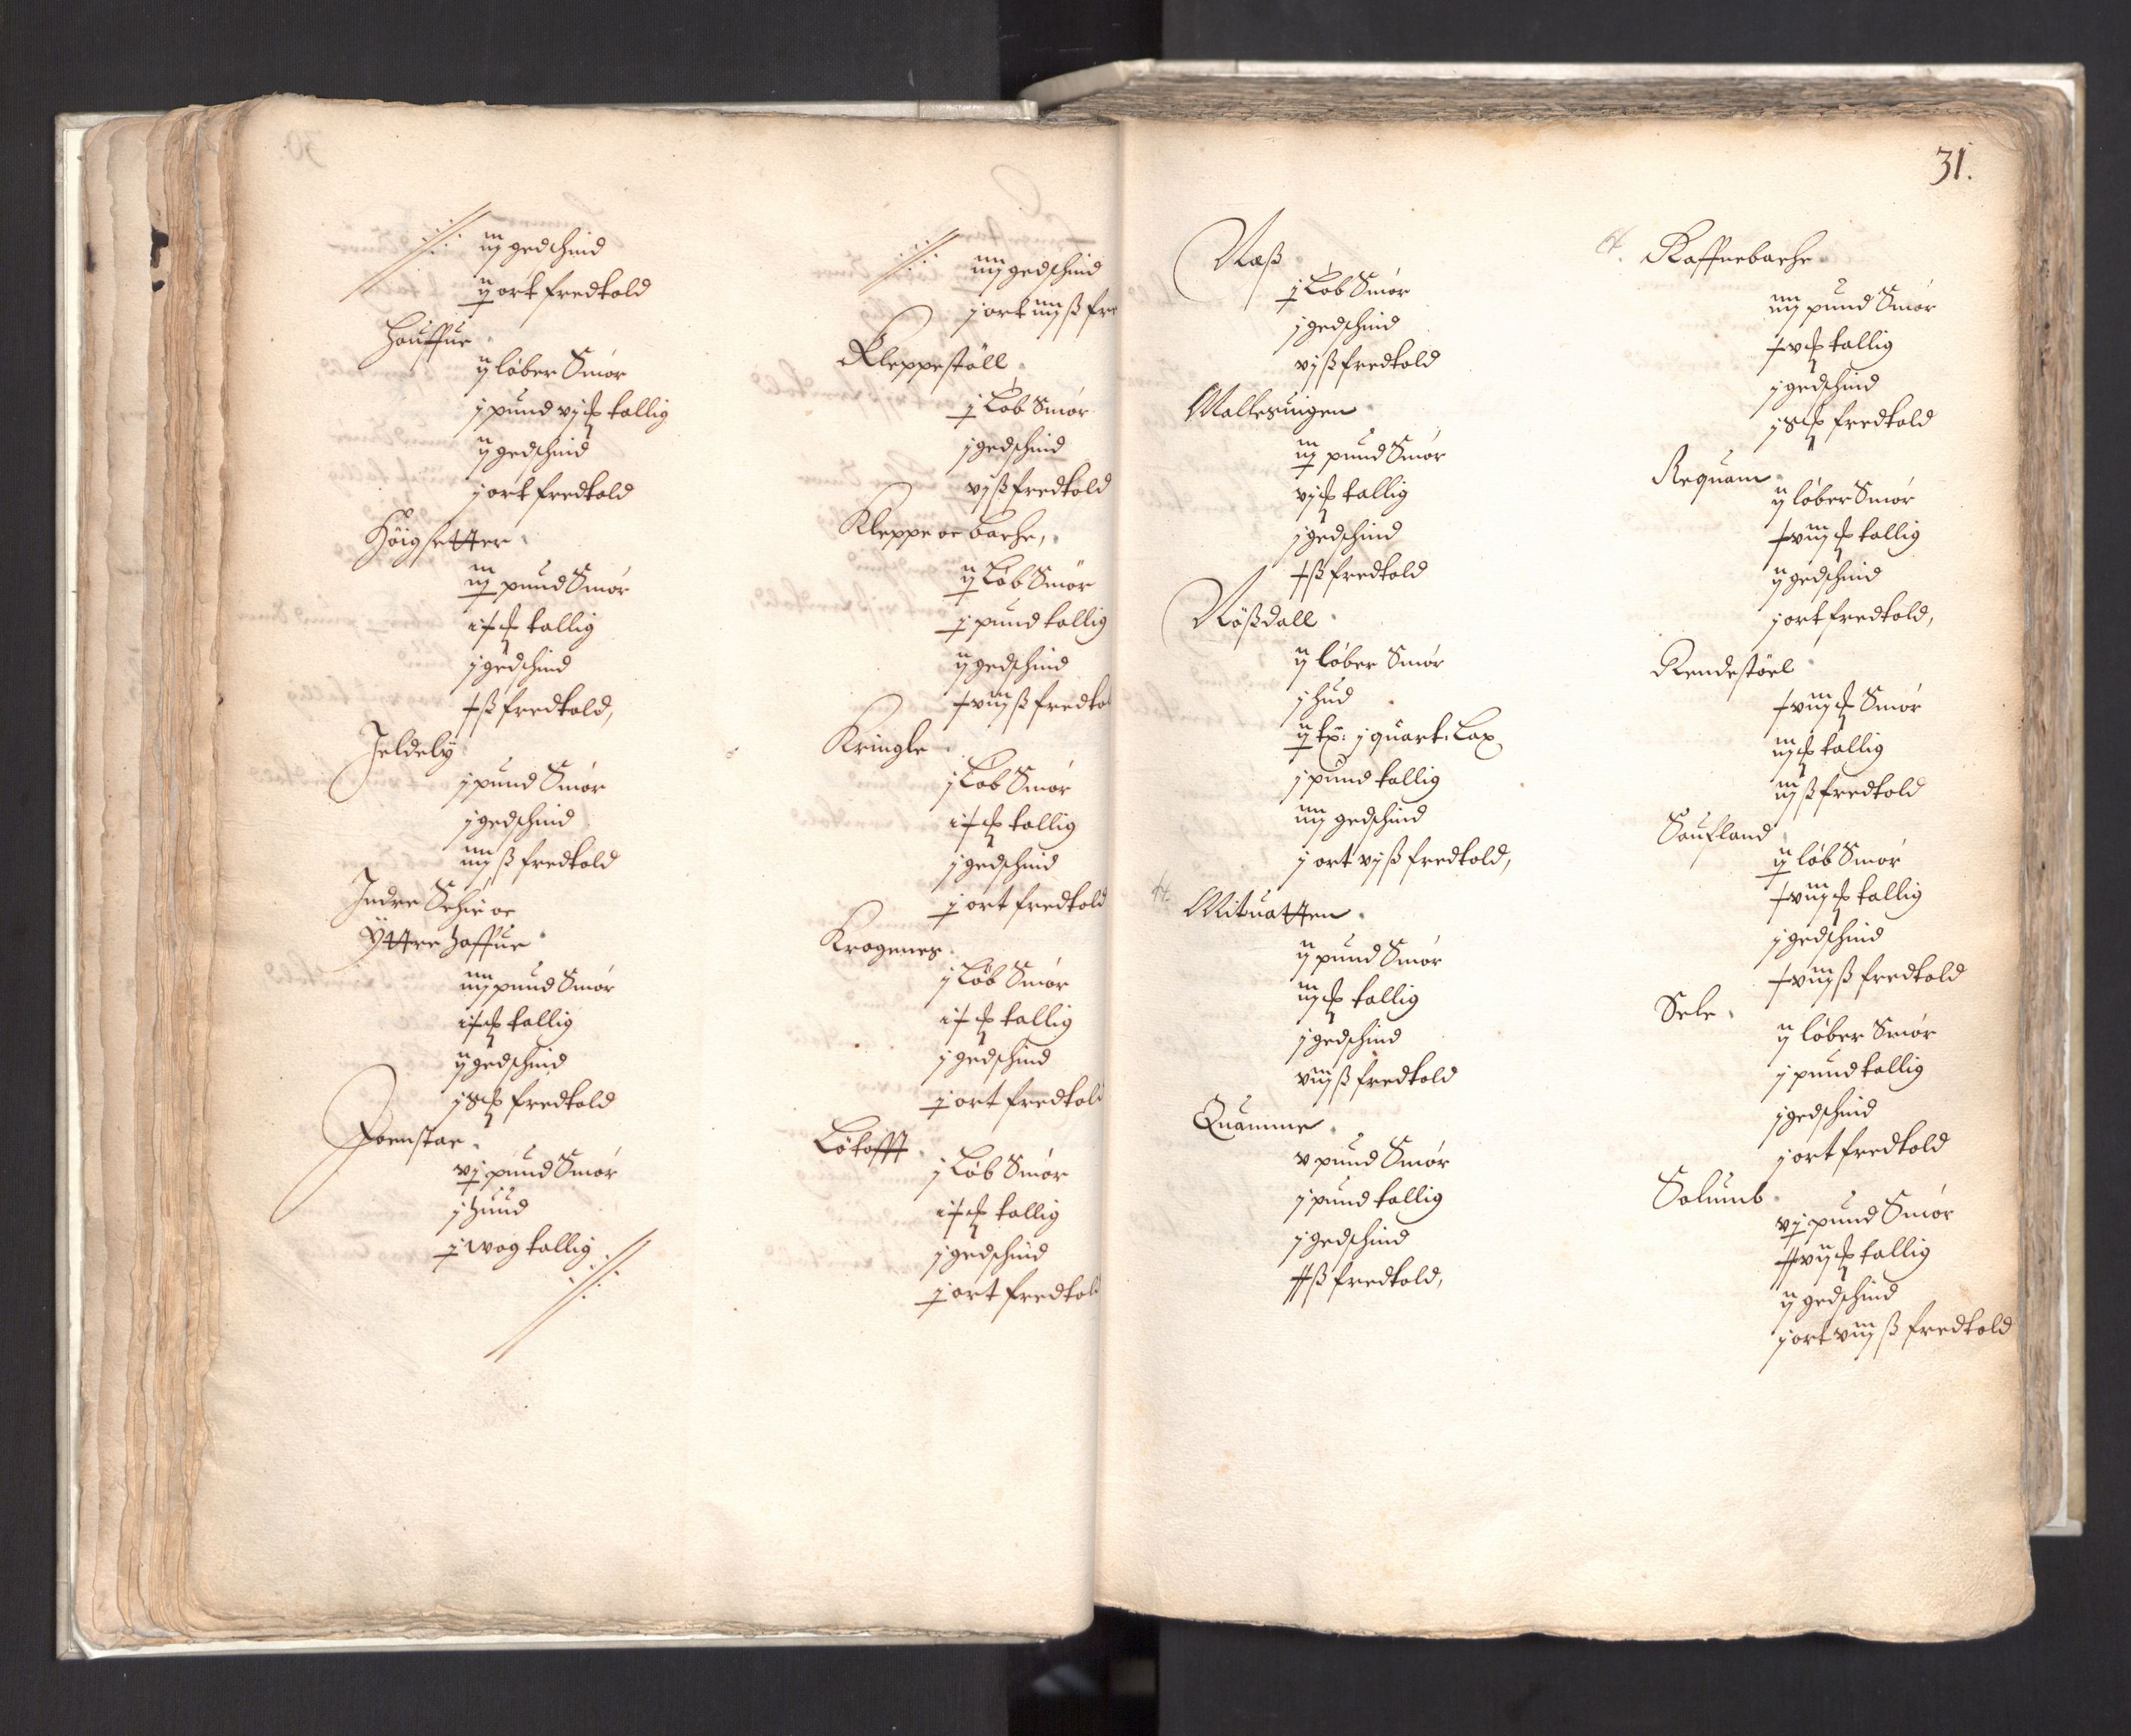 iij gedschind
ij ort fredtold
Houffue
ij løber Smør
j pund vj ℔ tallig
ij gedschind
j ort fredtold
Høigsetter
iij pund Smør
ix ℔ tallig
j gedschind
x ß fredtold,
Jeldely
j pund Smør
j gedschind
iiij ß fredtold
Indre Schie oc
Yttre Hoffue
iiij pund Smør
ix ℔ tallig
ij gedschind
j ß fredtold
Joenstae
vj pund Smør
j Huud
j wog tallig
iiij gedschind
j ort iiij ß fre
Kleppestøll
j Løb Smør
j gedschind
vj ß fredtold
Kleppe oc Bache,
ij Løb Smør
j pund tallig
ij gedschind
xviij ß fredtol
Kringle
j Løb Smør
ix ℔ tallig
j gedschind
j ort fredtold
Krogenes
j Løb Smør
ix ℔ tallig
j gedschind
j ort fredtold
Løtofft
j Løb Smør
ix ℔ tallig
j gedschind
j ort fredtold
31.
Naß
j Løb Smør
j gedschind
vj ß fredtold
Naltesuigen
iij pund Smør
vj ℔ tallig
j gedschind
x ß fredtold
Nøßdall
ij løber Smør
j Hud
j quart. Lax
j pund tallig
iiij gedschind
j ort vj ß fredtold,
Nituatten
ij pund Smør
iij ℔ tallig
j gedschind
viij ß fredtold
Quamme
v pund Smør
j pund tallig
j gedschind
xx ß fredtold,
Raffnebache
iiij pund Smør
xv ℔ tallig
j gedschind
j ß fredtold
Requam
ij løber Smør
xviij ℔ tallig
ij gedschind
j ort fredtold,
Rendestøel
xviij ℔ Smør
iij ℔ tallig
iij ß fredtold
Soufland
ij løb Smør
xviij ℔ tallig
j gedschind
xviij ß fredtold
Sele
ij løber Smør
j pund tallig
j gedschind
j ort fredtold
Solumb
vj pund Smør
xxvij ℔ tallig
ij gedschind
j ort viij ß fredtold